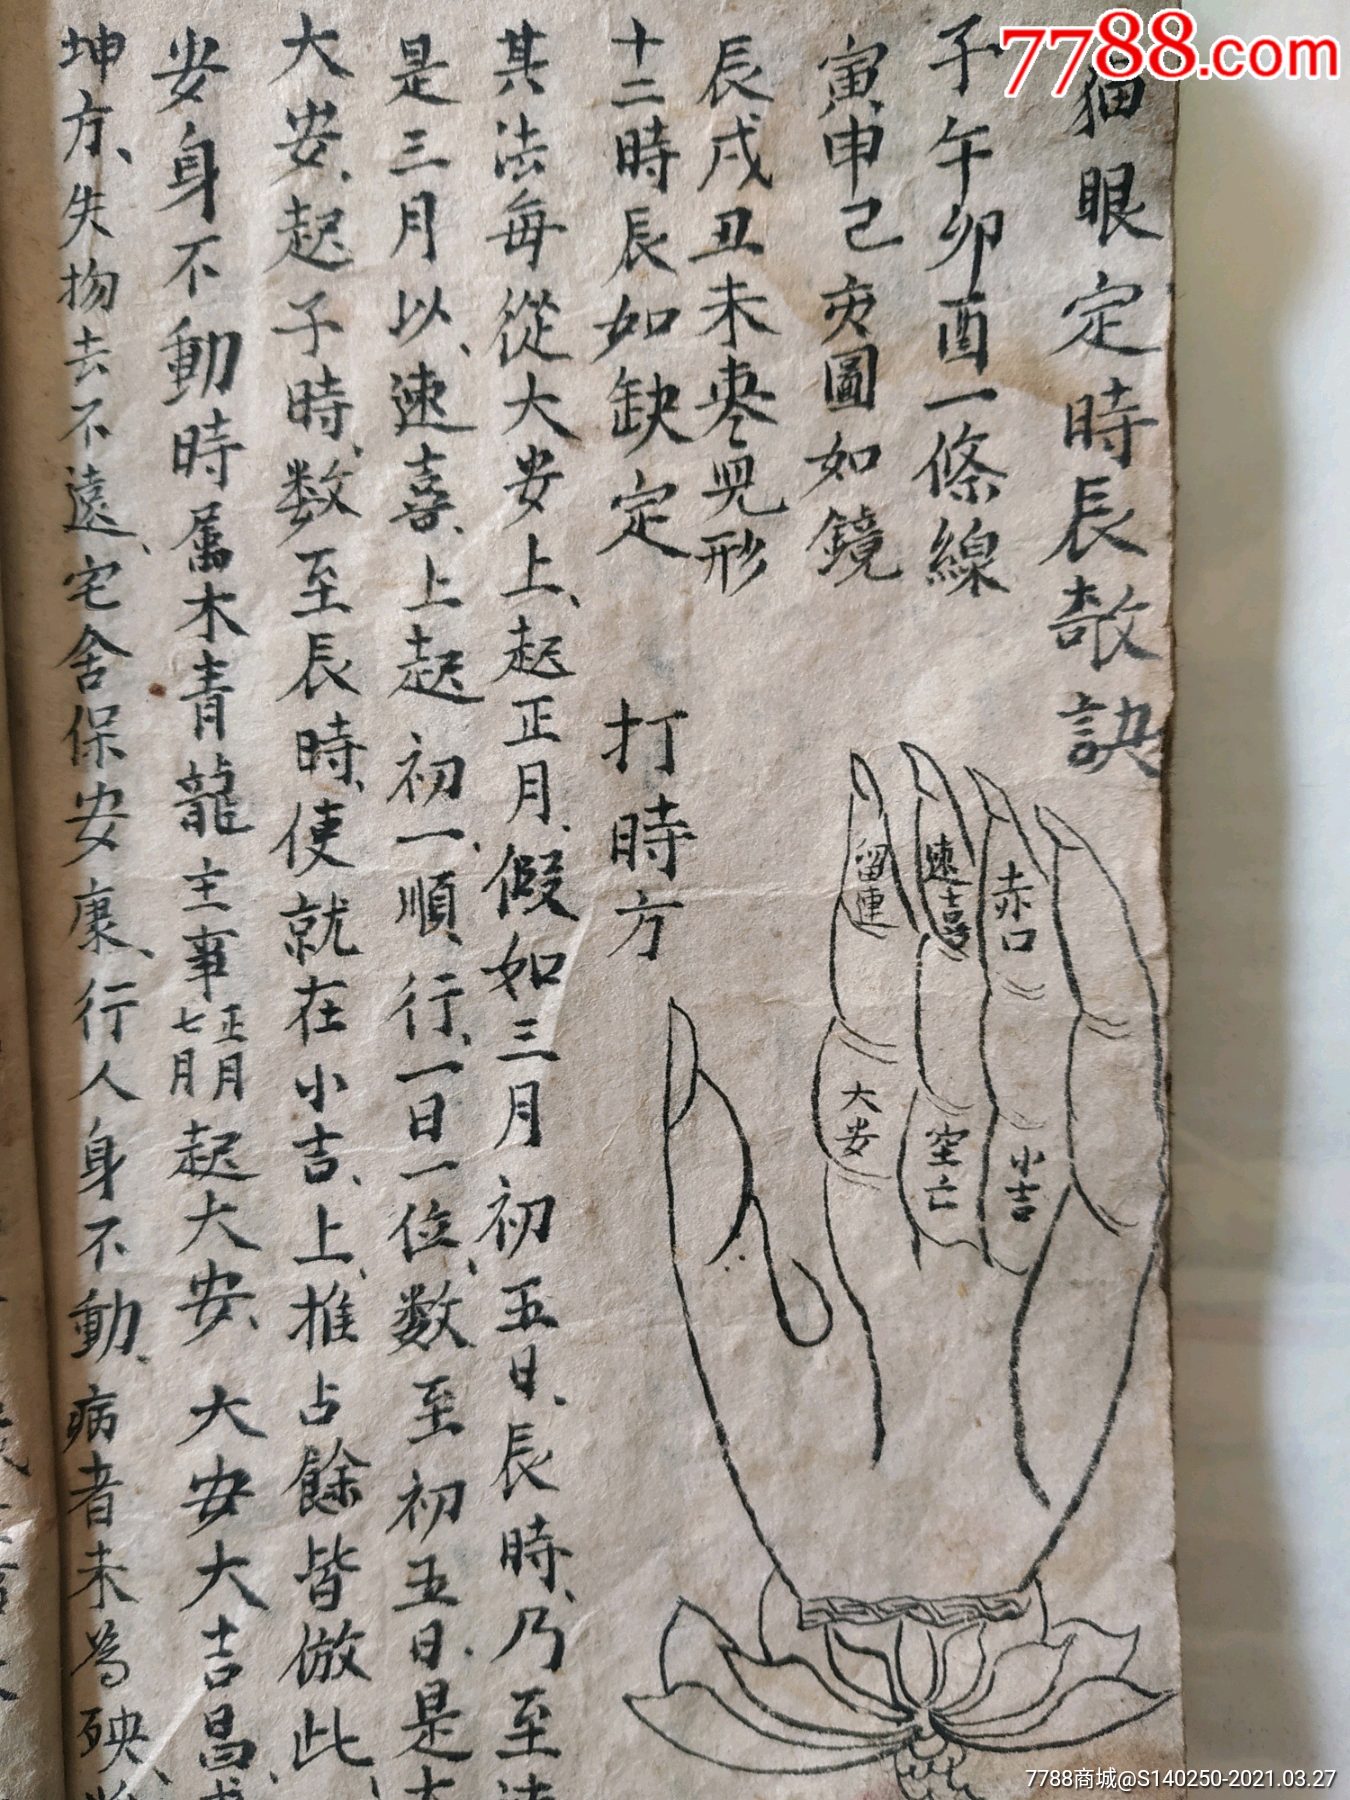 7788.com
猫眼定時辰敨訣
子午卯酉一條線
寅申己亥圖如鏡
辰戌丑未枣児形
十二時辰如缺定
打時方
留連
速喜
赤口
大安
空亡
小吉
其法每從大安上、起正月、假如三月初五日、辰時、乃至
是三月以、速喜、上起初一、順行、一日一位、数至初五日、是大
大安、起子時、数至辰時、使就在小吉、上、推占餘皆倣此、
安身不動時属木青龍主事正月七月起大安、大安大吉昌
坤方、失物去不遠、宅舍保安康、行人身不動、病者未為殃、
7788商城@S140250-2021.03.27